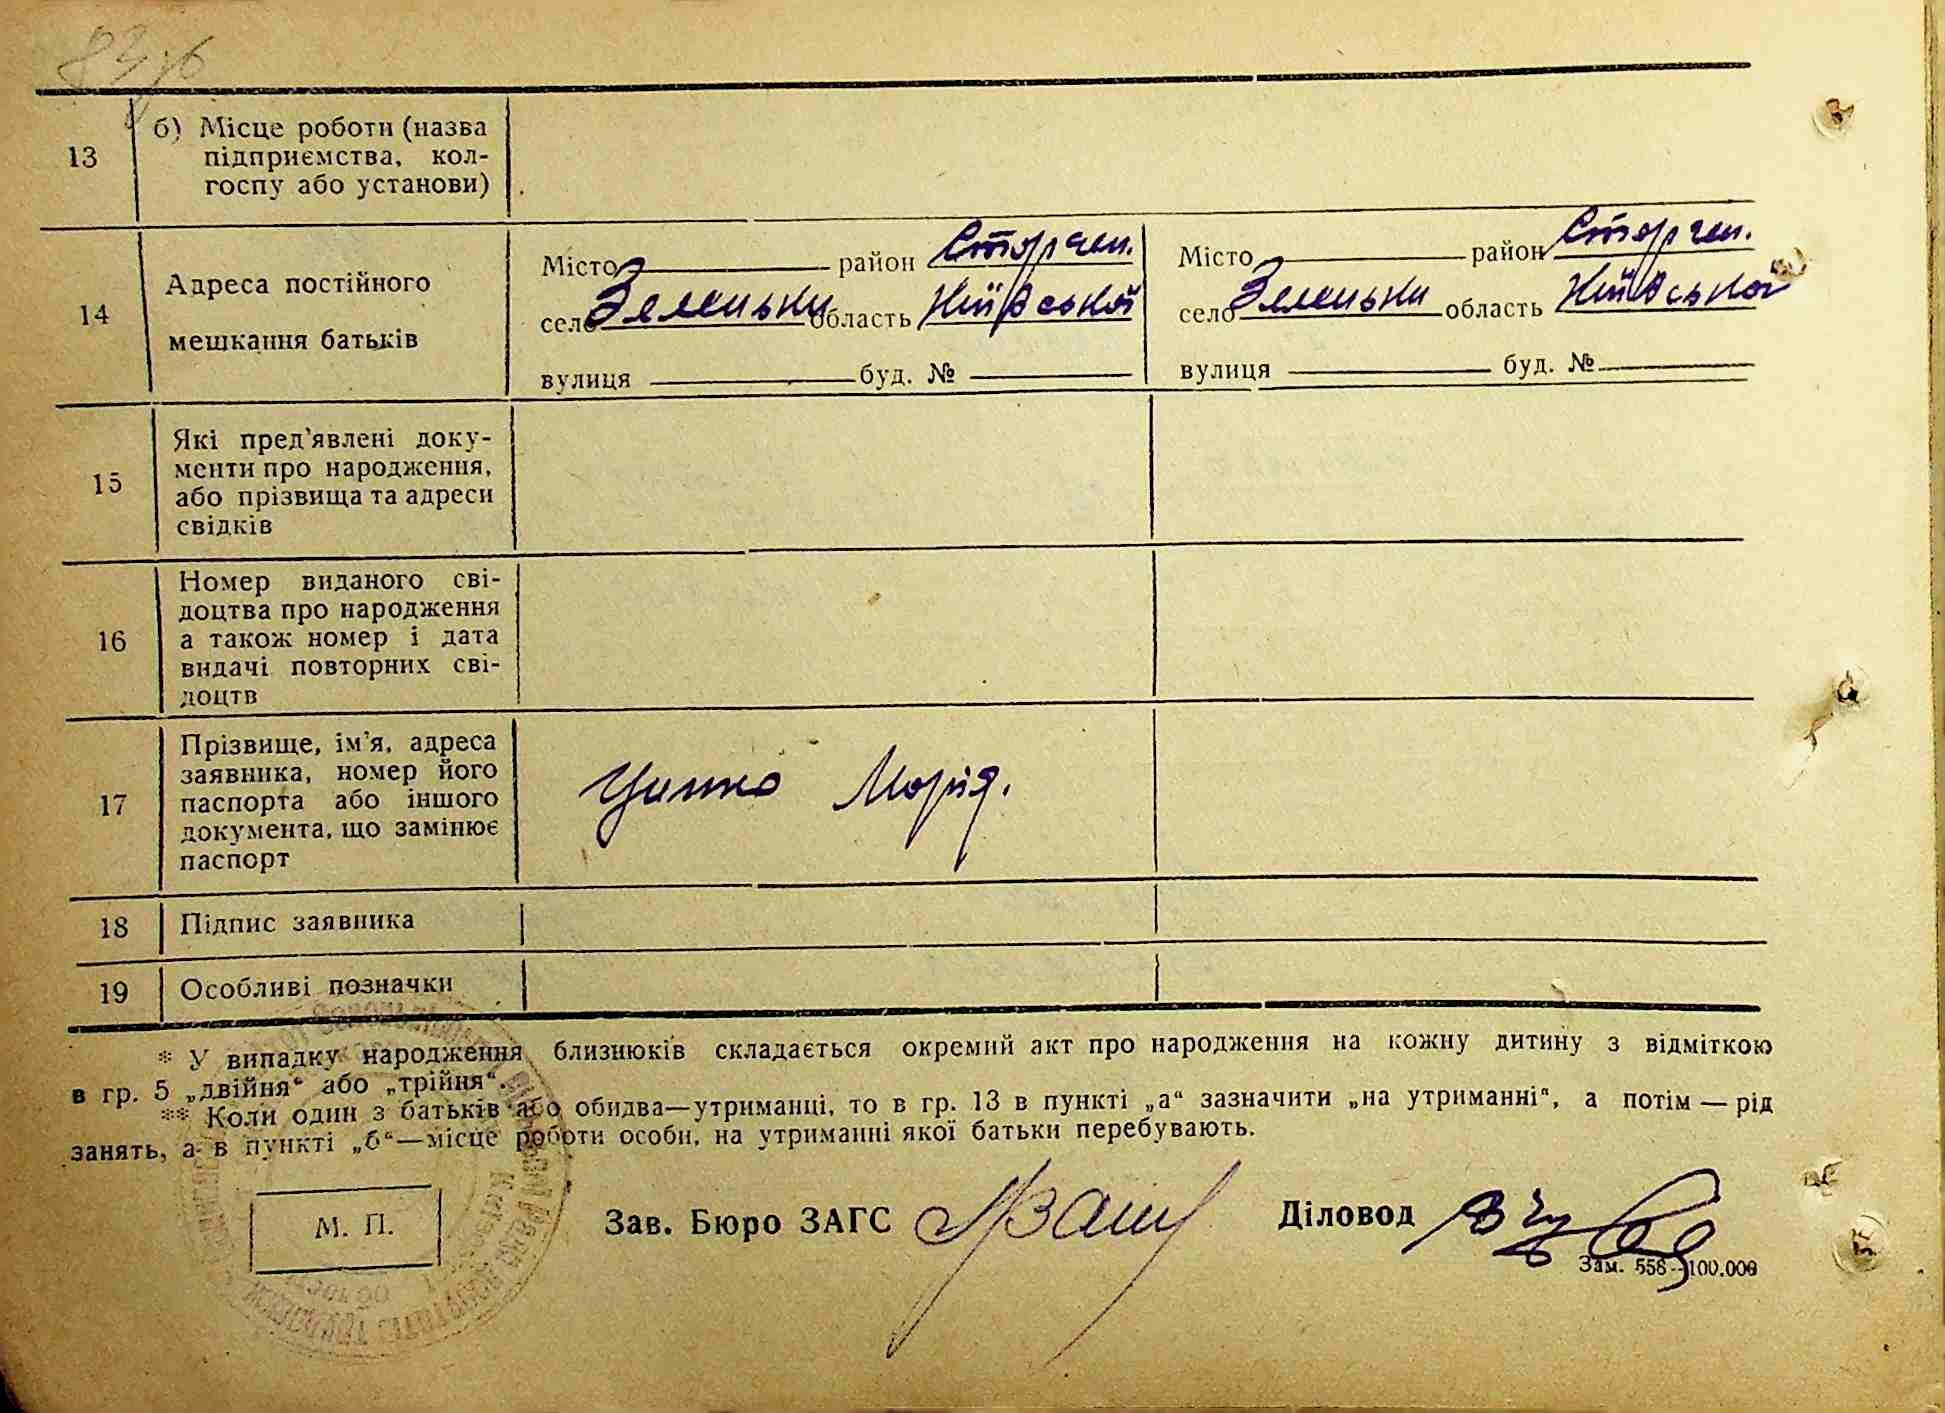 83 зв
13
б) Місце роботи (назва
підприємства, кол-
госпу або установи)
14
Адреса постійного
мешкання батьків
Місто район Сторчен.
село Зеленьки область Київської
вулиця буд. №
Місто район Сторчен.
село Зеленьки область Київської
вулиця буд. №
15
Які пред'явлені доку-
менти про народження,
або прізвища та адреси
свідків
16
Номер виданого сві-
доцтва про народження
а також номер і дата
видачі повторних сві-
доцтв
17
Прізвище, ім'я, адреса
заявника, номер його
паспорта або іншого
документа, що замінює
паспорт
Марія.
18
Підпис заявника
19
Особливі позначки
* У випадку народження близнюків складається окремий акт про народження на кожну дитину з відміткою
в гр. 5 „двійня“ або „трійня“.
** Коли один з батьків або обидва—утриманці, то в гр. 13 в пункті „а“ зазначити „на утриманні“, а потім — рід
занять, а в пункті „б“—місце роботи особи, на утриманні якої батьки перебувають.
М. П.
Зав. Бюро ЗАГС
Діловод
Зам. 558—100.000